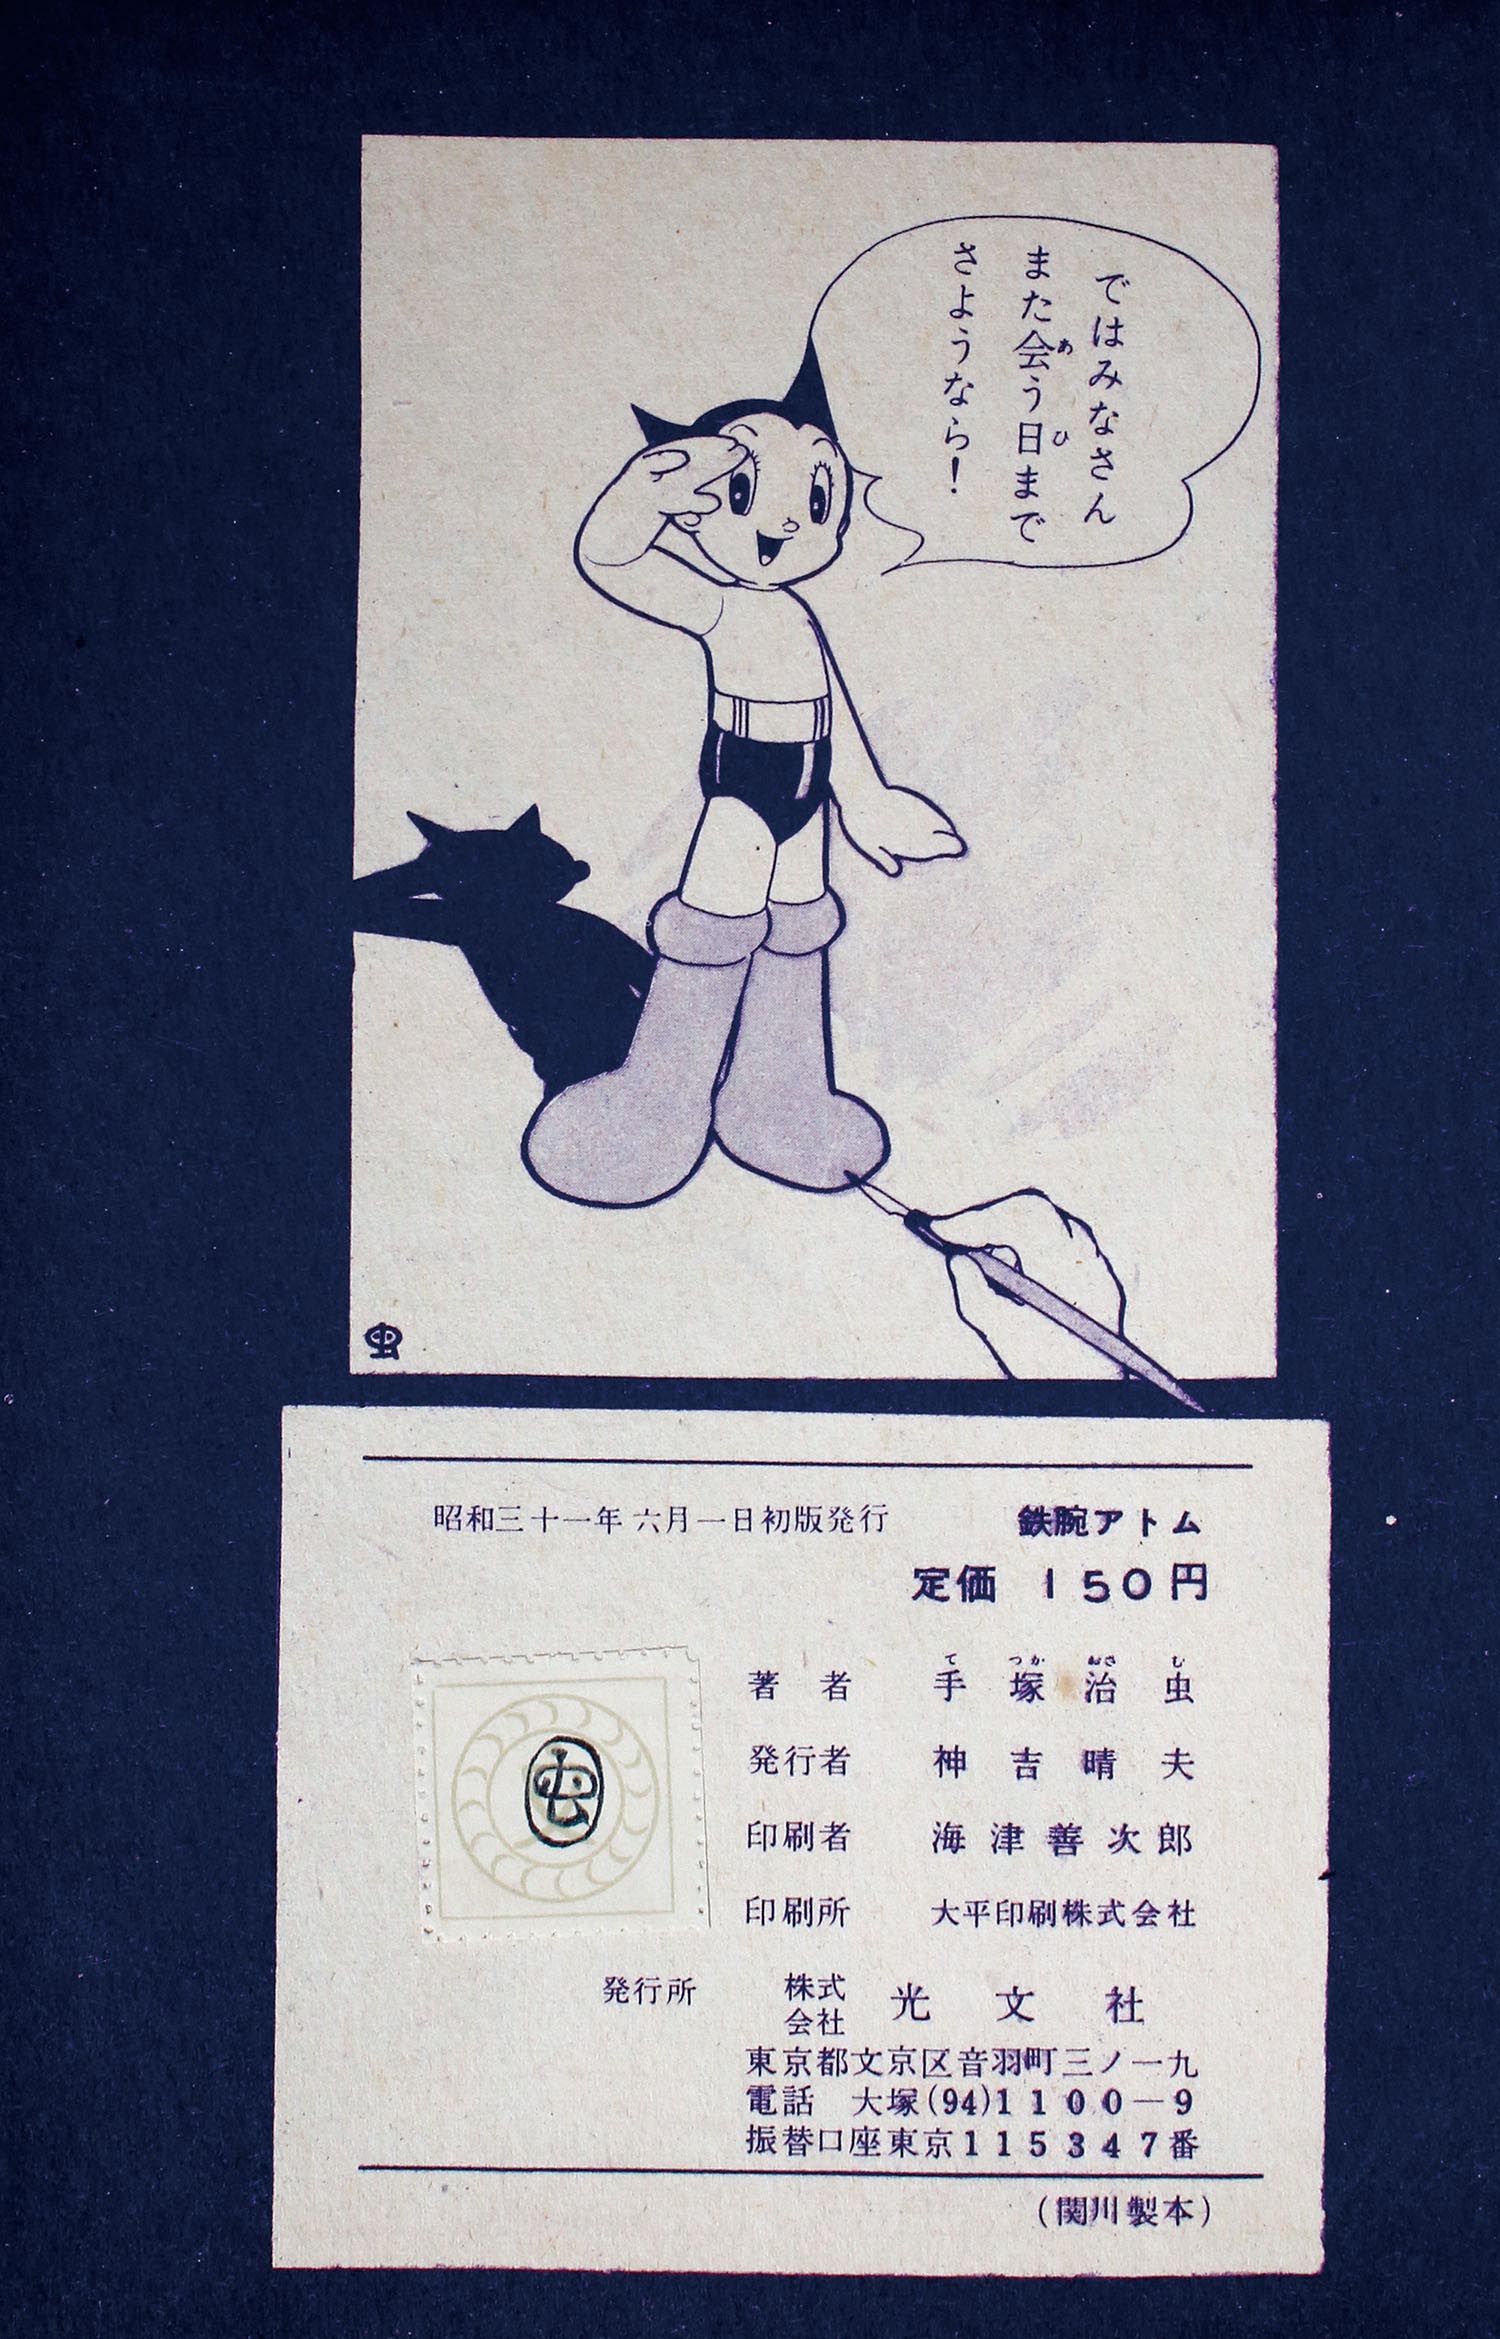 ではみなさん
また会う日まで
さようなら!
あ
ひ
虫
鉄腕アトム
昭和三十一年六月一日初版発行
定価 150円
て つか おさ む
著者 手塚治虫
発行者 神吉晴夫
印刷者 海津善次郎
印刷所 大平印刷株式会社
虫
発行所 株式会社 光文社
東京都文京区音羽町三ノ一九
電話 大塚(94)1100—9
振替口座東京115347番
(関川製本)